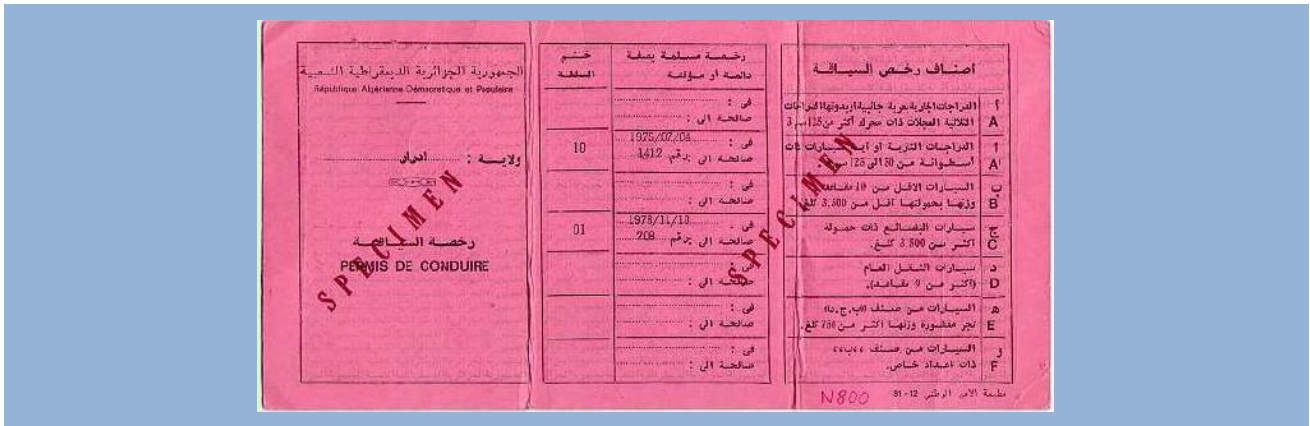 الجمهورية الجزائرية الديمقراطية الشعبية
République Algérienne Démocratique et Populaire
ولايـة : ادرار
رخصة السياقة
PERMIS DE CONDUIRE
SPECIMEN
ختم السلطة
رخصة مسلمة بصفة
دائمة أو مؤقتة
في :
صالحة الى :
10
في : 1975/07/04
صالحة الى برقم 1412
في :
صالحة الى :
01
في : 1978/11/10
صالحة الى برقم 208
في :
صالحة الى :
في :
صالحة الى :
في :
صالحة الى :
SPECIMEN
أصناف رخص السياقة
أ
A
الثلاثية العجلات ذات محرك أكثر من 125 سم3
أ
A
أسطوانة من 50 الى 125
ب السيارات الاقل من 10 مقاعد
B وزنها بحمولتها أقل من 3.500 كلغ
ج سيارات البضائع ذات حمولة
C اكثر من 3.500 كلغ.
د سيارات النقل العام
D (اكثر من 9 مقاعد).
ه السيارات من صنف (ب.ج.د)
E تجر مقطورة وزنها اكثر من 750 كلغ.
ز السيارات من صنف ،،ب،،
F ذات اعداد خاص.
N800
مطبعة الامن الوطني 12 - 81